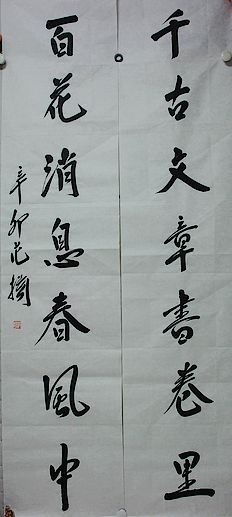 千古文章書卷里
百花消息春風中
辛卯范攅